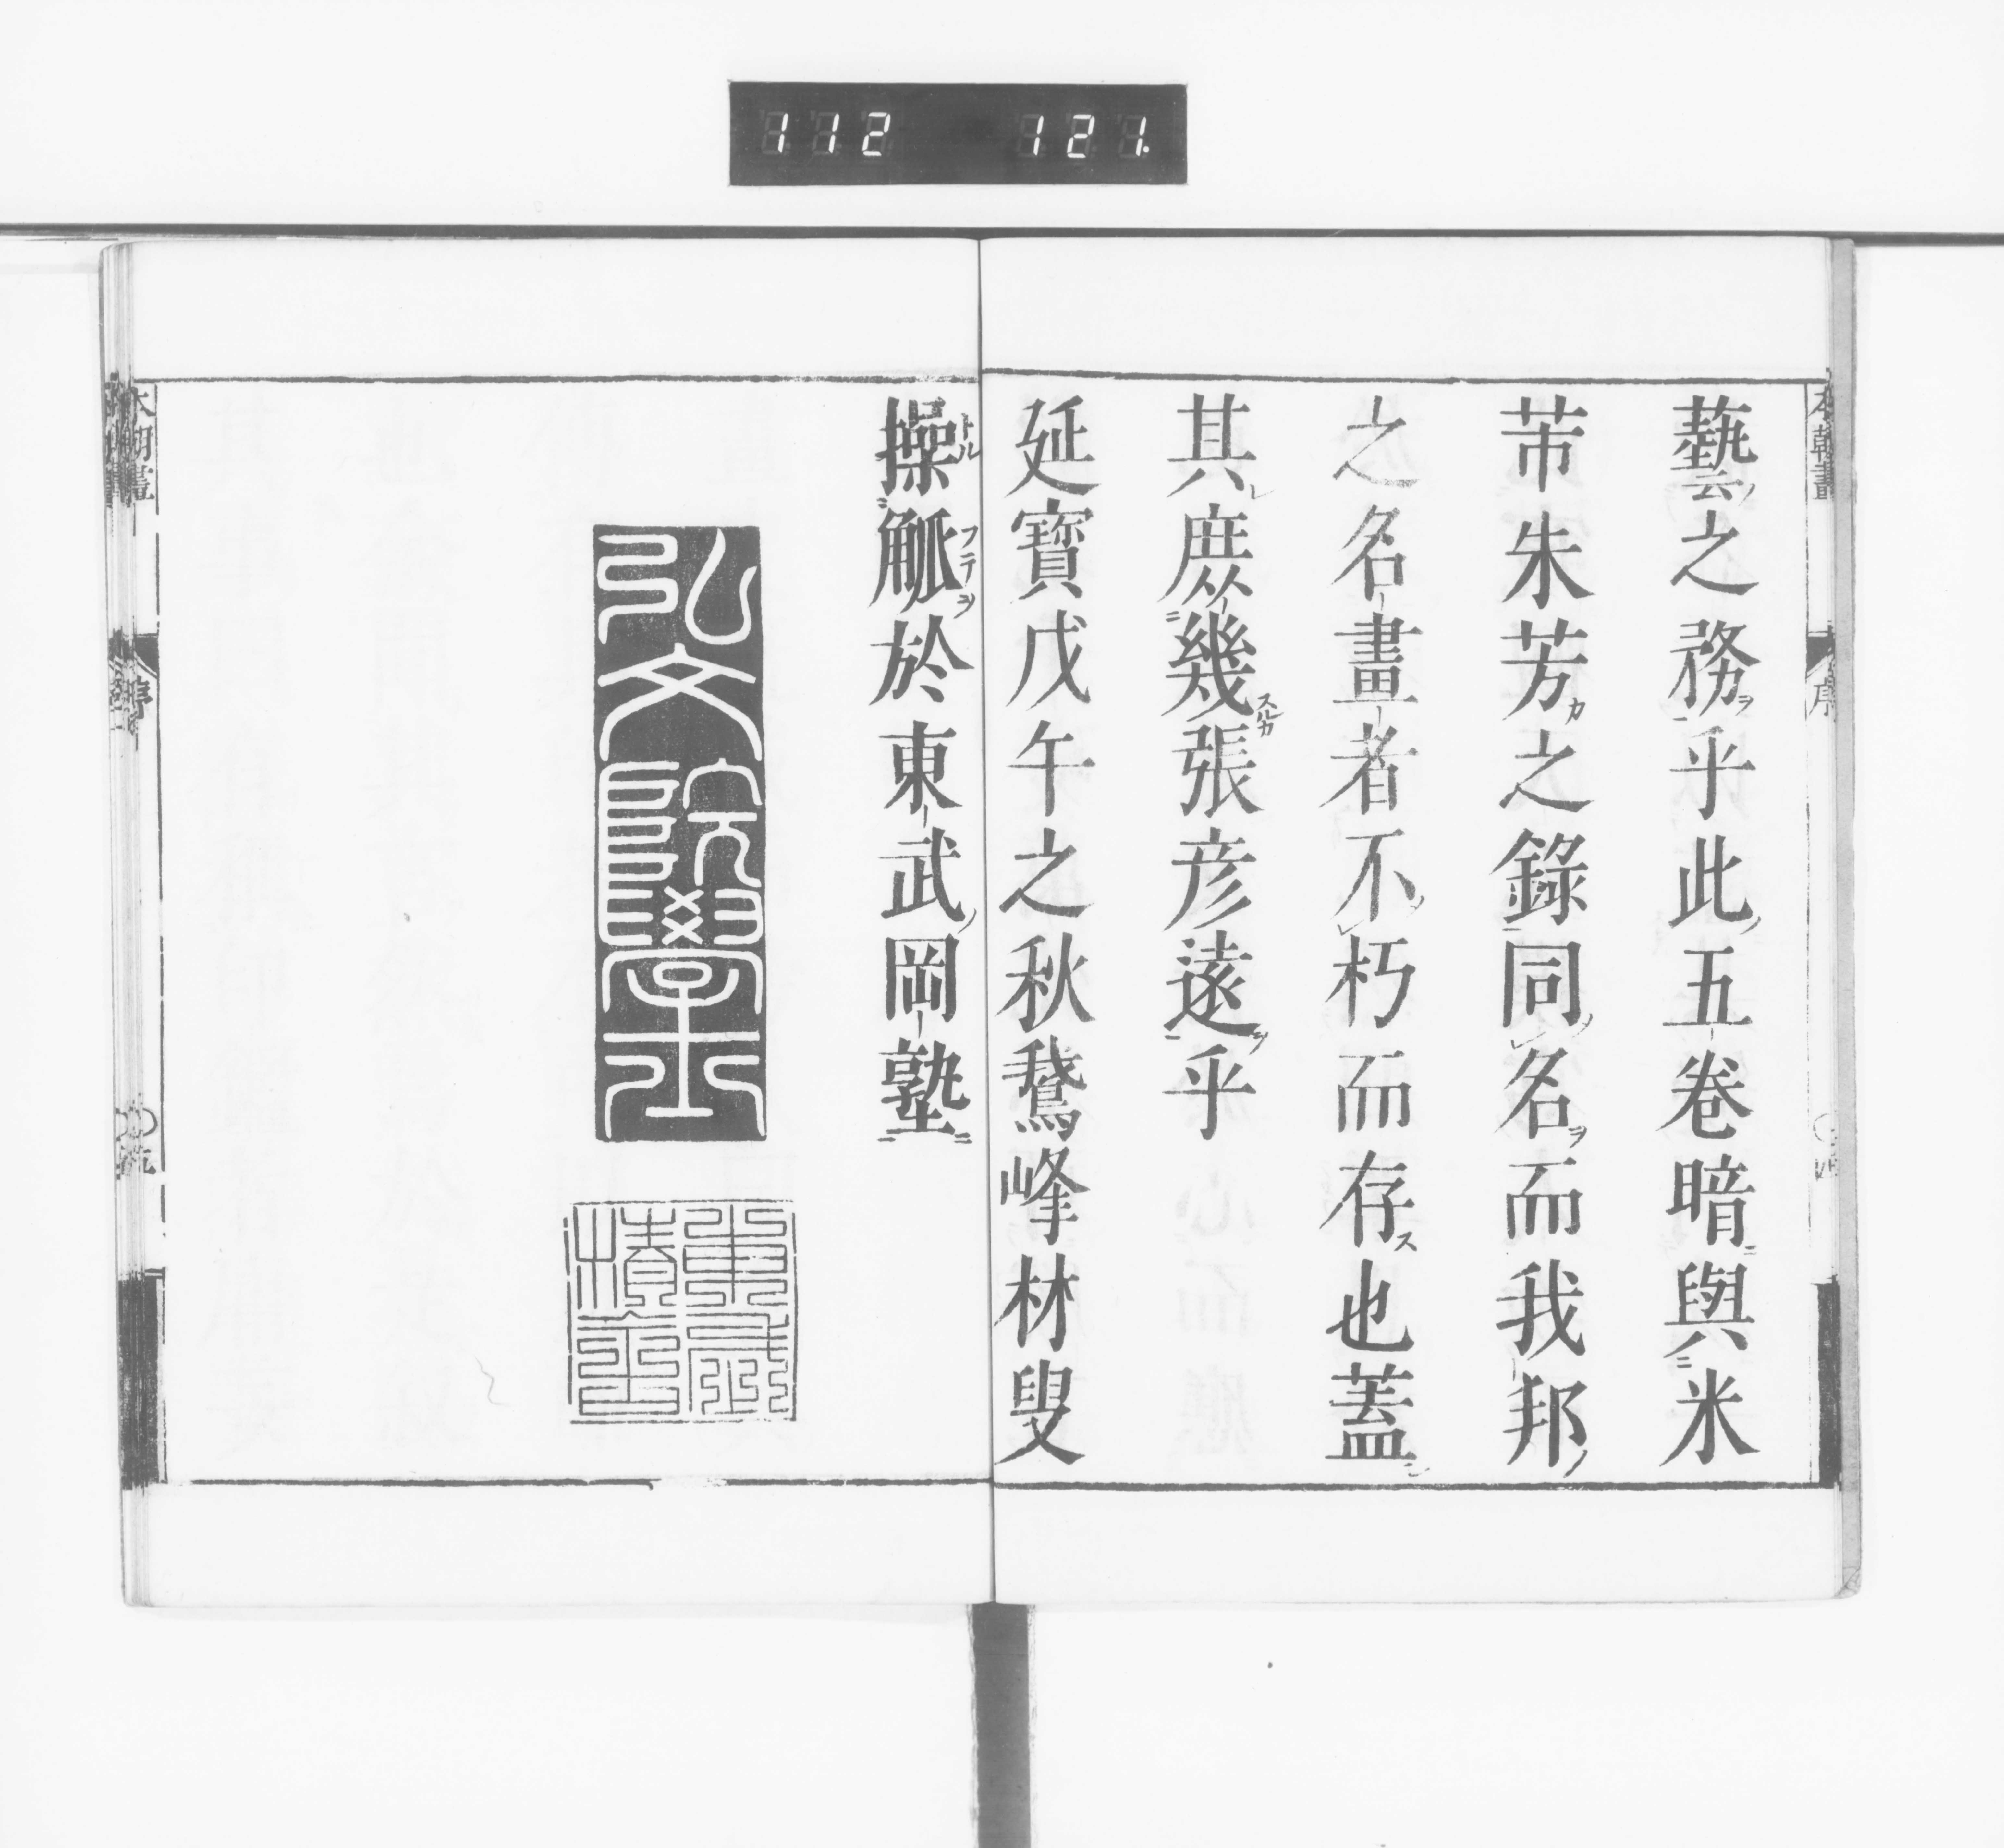 112 121.
藝之務乎此五卷暗與米
芾朱芳之錄同名而我邦
之名畫者不朽而存也蓋
其庶幾張彦遠乎
延寶戊午之秋鵞峰林叟
操觚於東武岡塾
弘文院學士
序